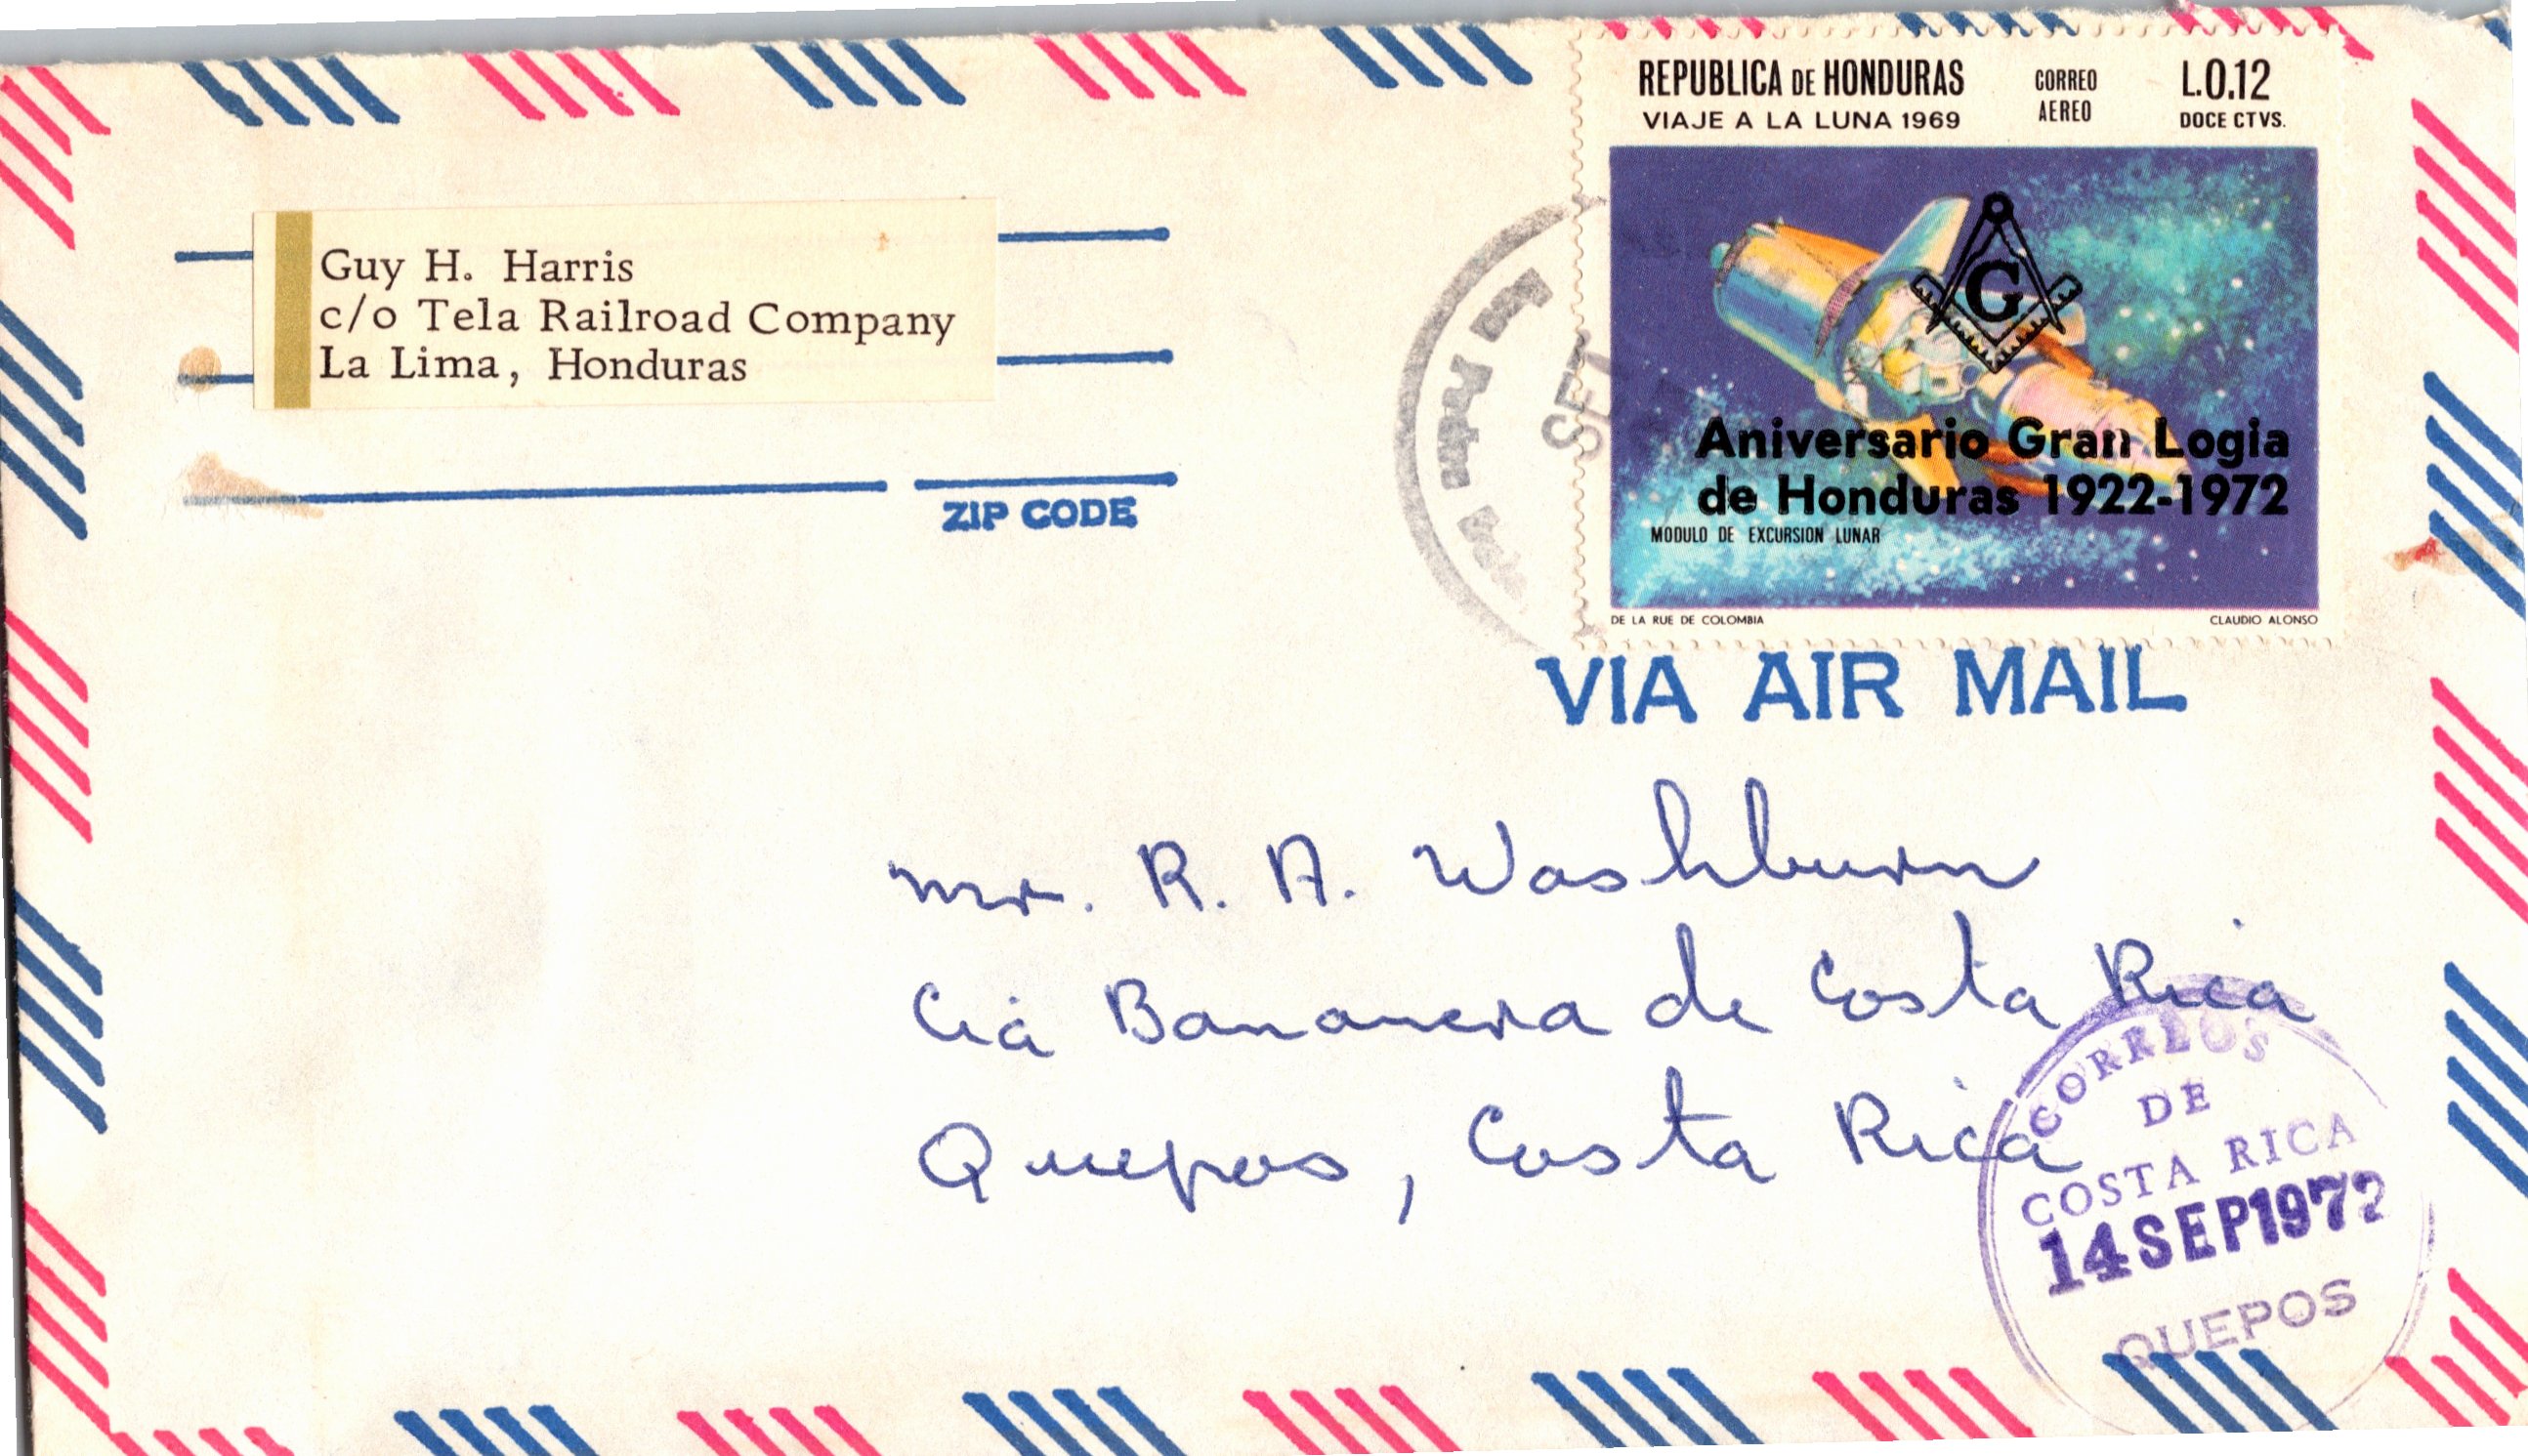 Guy H. Harris
c/o Tela Railroad Company
La Lima, Honduras
ZIP CODE
REPUBLICA DE HONDURAS
VIAJE A LA LUNA 1969
CORREO
AEREO
L.0.12
DOCE CTVS.
G
Aniversario Gran Logia
de Honduras 1922-1972
MODULO DE EXCURSION LUNAR
DE LA RUE DE COLOMBIA
CLAUDIO ALONSO
San Pedro Sula
SET
VIA AIR MAIL
Mr. R. A. Washburn
Cia Bananera de Costa Rica
Quepos, Costa Rica
CORREOS
DE
COSTA RICA
14 SEP 1972
QUEPOS